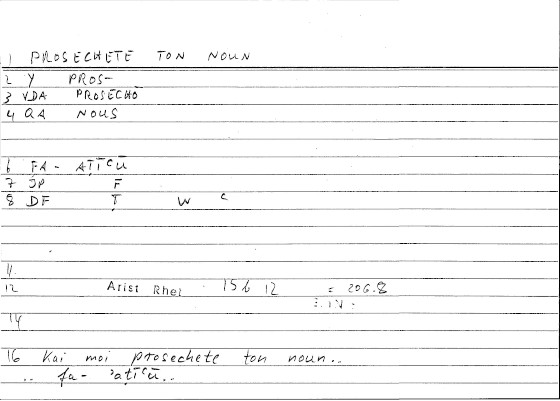 1 PROSECHETE TON NOUN
2 Y PROS-
3 VDA PROSECHŌ
4 QA NOUS
6 FA- AṬĪʿŪ
7 ĪP F
8 DF Ṭ W ʿ
11.
12 Arist Rhet 156 12 = 206.8
14
16 Kai moi prosechete ton noun..
.. fa- 'aṭīʿū..